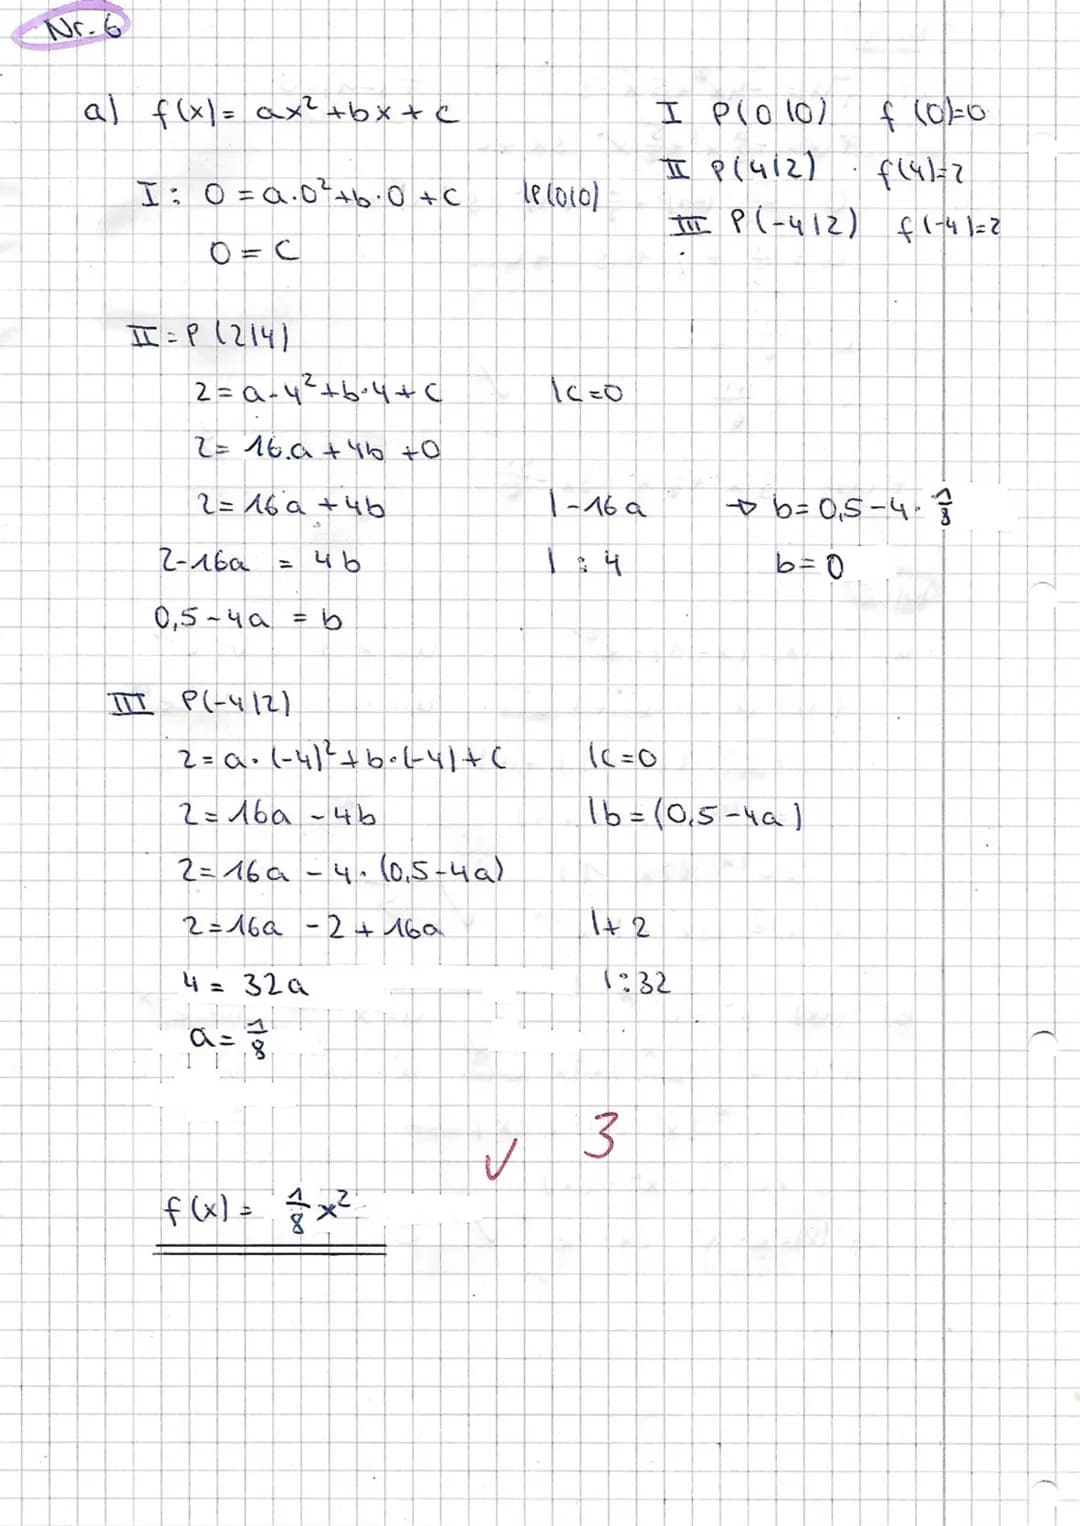 Nr. 6
a) f(x) = ax² + bx + c
I P(0|0) f(0)=0
II P(4|2) f(4)=2
III P(-4|2) f(-4)=2
I: 0 = a·0² + b·0 + c |P(0|0)
0 = c
II = P(2|4)
2 = a·4² + b·4 + c |c=0
2 = 16·a + 4b + 0
2 = 16a + 4b |-16a
2-16a = 4b |:4
0,5-4a = b
→ b = 0,5-4·1/8
b = 0
III P(-4|2)
2 = a·(-4)² + b·(-4) + c |c=0
2 = 16a - 4b |b=(0,5-4a)
2 = 16a - 4·(0,5-4a)
2 = 16a - 2 + 16a |+2
4 = 32a |:32
a = 1/8
✓ 3
f(x) = 1/8 x²